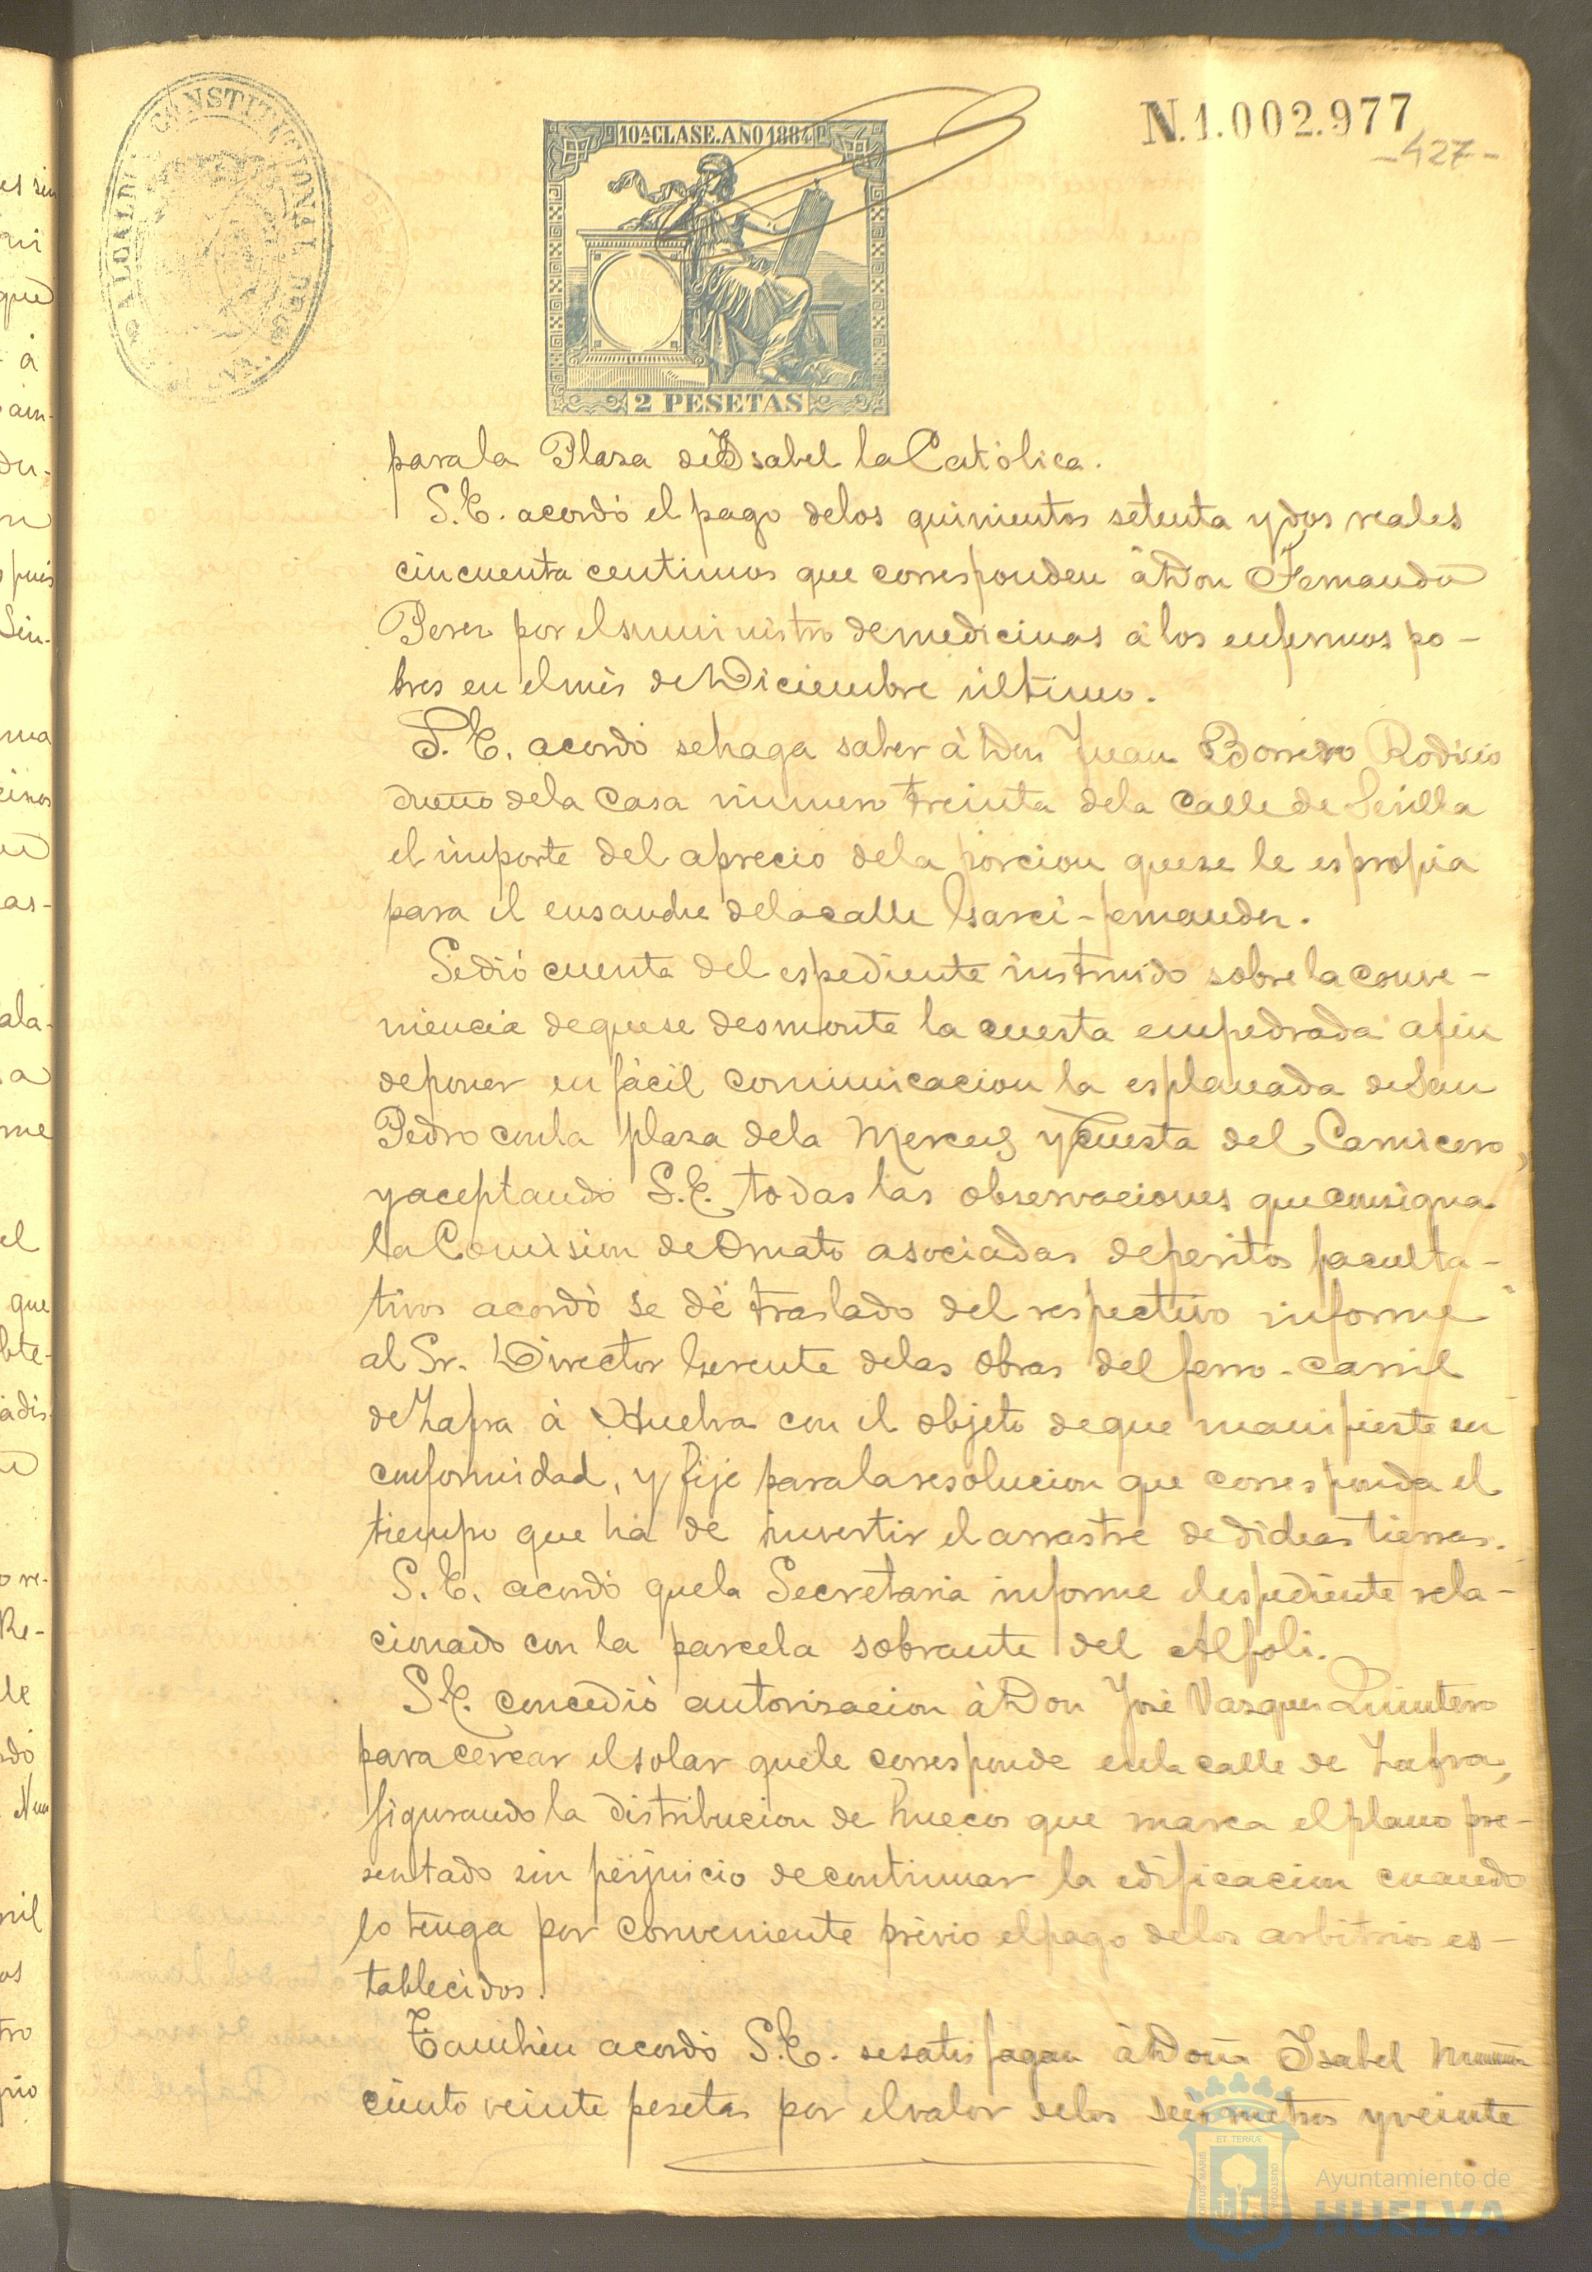 ALCALDIA CONSTITUCIONAL DE
10ª CLASE. AÑO 1884
2 PESETAS
N.1.002.977
-427-
para la Plaza de Ysabel la Católica.
S.E. acordó el pago de los quinientos setenta y dos reales
cincuenta centimos que corresponden á Don Fernando
Perez por el suministro de medicinas á los enfermos po-
bres en el més de Diciembre último.
S.E. acordó se haga saber á Don Juan Borrero Rodicio
dueño de la Casa número treinta de la Calle de Sevilla
el importe del aprecio de la porcion que se le espropia
para el ensanche de la calle Garci-fernandez.
Se dió cuenta del espediente instruido sobre la conve-
niencia de que se desmonte la cuesta empedrada afin
de poner en fácil comunicacion la esplanada de San
Pedro con la plaza de la Merced y Cuesta del Carnicero,
y aceptando S.E. todas las observaciones que consigna
la Comision de Ornato asociadas de peritos faculta-
tivos acordó se dé traslado del respectivo informe
al Sr. Director Gerente de las obras del ferro-carril
de Zafra á Huelva con el objeto de que manifieste su
conformidad, y fije para la resolucion que corresponda el
tiempo que há de invertir el arrastre de dichas tierras.
S.E. acordó que la Secretaria informe el espediente rela-
cionado con la parcela sobrante del Alfoli.
S.E. concedió autorizacion á Don José Vazquez Quintero
para cercar el solar que le corresponde en la calle de Zafra,
figurando la distribucion de huecos que marca el plano pre-
sentado sin perjuicio de continuar la edificacion cuando
lo tenga por conveniente prévio el pago de los arbitrios es-
tablecidos.
Tambien acordó S.E. se satisfagan á Doña Isabel
ciento veinte pesetas por el valor de los seis metros y veinte
ET TERRÆ
Ayuntamiento de
HUELVA